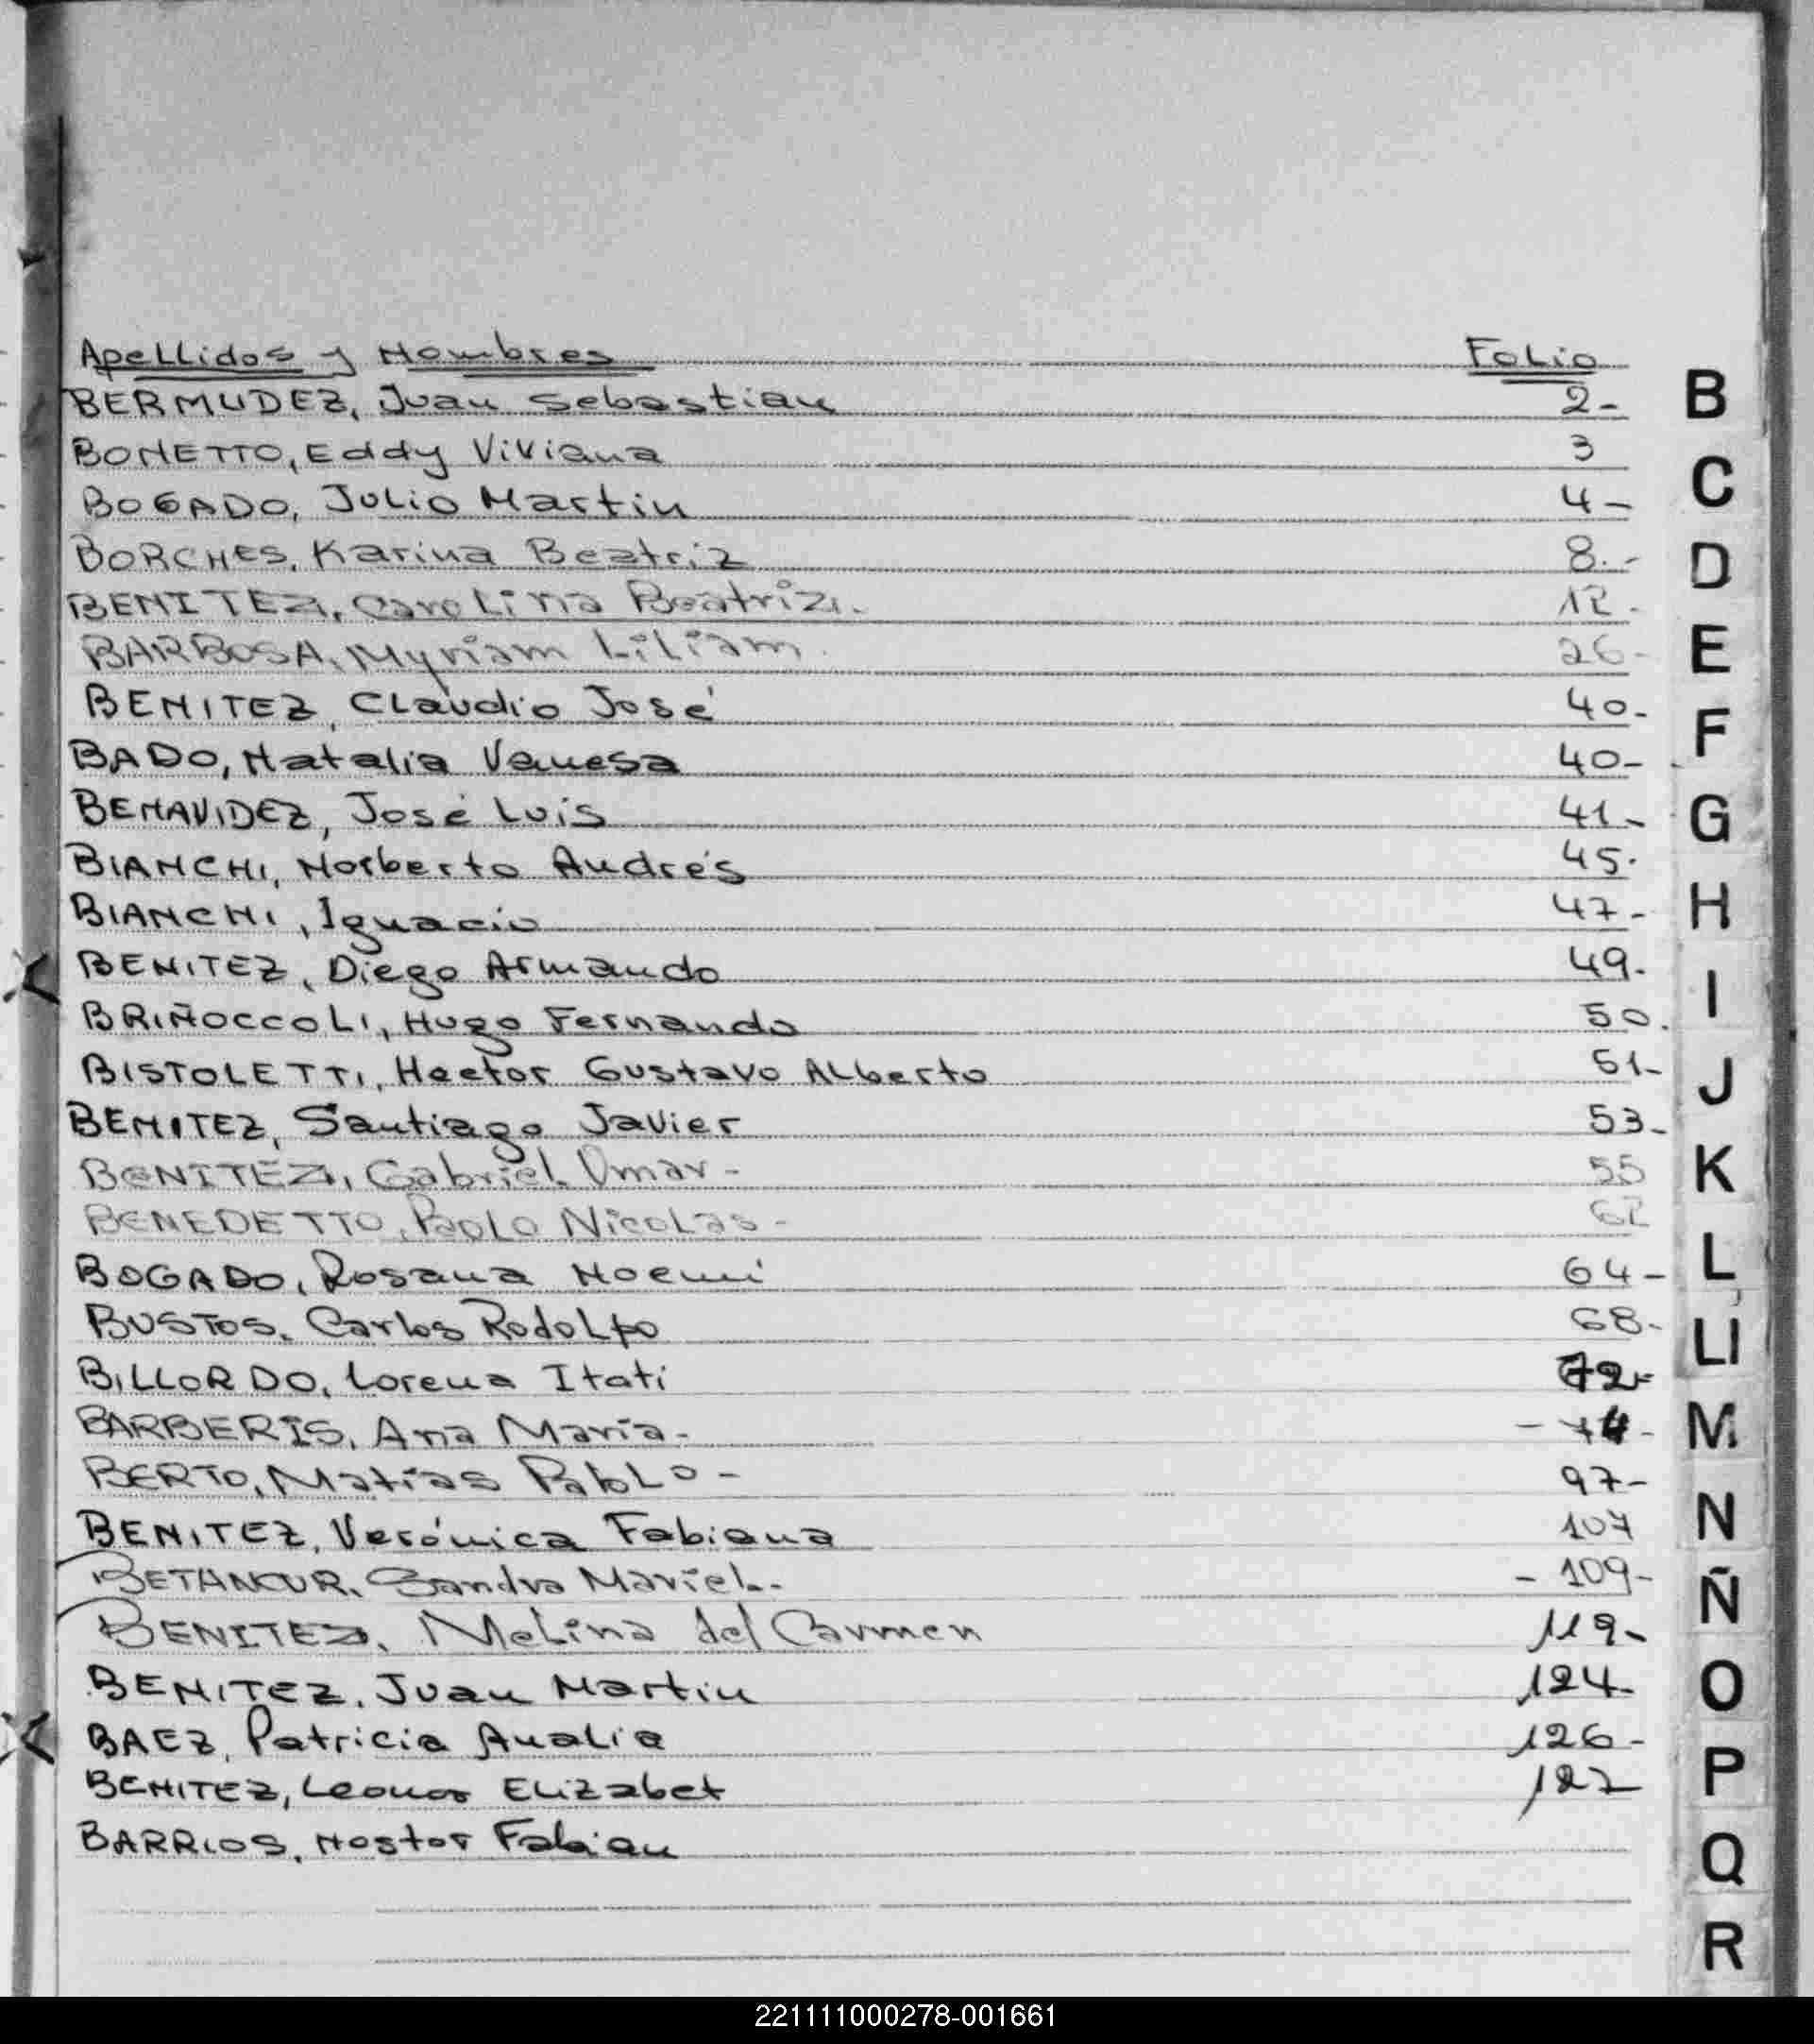 Apellidos y Nombres Folio
BERMUDEZ, Juan Sebastian 2-
BONETTO, Eddy Viviana 3
BOGADO, Julio Martin 4-
BORCHES, Karina Beatriz 8.-
BENITEZ, Carolina Beatriz. 12.
BARBOSA, Myriam Liliam. 26-
BENITEZ, Claudio José 40-
BADO, Natalia Vanesa 40-
BENAVIDEZ, José Luis 41-
BIANCHI, Norberto Andrés 45.
BIANCHI, Ignacio 47-
BENITEZ, Diego Armando 49-
BRIÑOCCOLI, Hugo Fernando 50.
BISTOLETTI, Hector Gustavo Alberto 51-
BENITEZ, Santiago Javier 53-
BENITEZ, Gabriel Omar- 55
BENEDETTO, Paolo Nicolas- 62
BOGADO, Rosana Noemí 64-
BUSTOS, Carlos Rodolfo 68-
BILLORDO, Lorena Itati 72-
BARBERIS, Ana María- - 74-
BERTO, Matías Pablo- 97-
BENITEZ, Verónica Fabiana 107
BETANCUR, Sandra Mariel.- - 109-
BENITEZ, Melina del Carmen 119-
BENITEZ, Juan Martin 124-
BAEZ, Patricia Analia 126-
BENITEZ, Leonor Elizabet 127
BARRIOS, Nestor Fabian
B
C
D
E
F
G
H
I
J
K
L
Ll
M
N
Ñ
O
P
Q
R
221111000278-001661